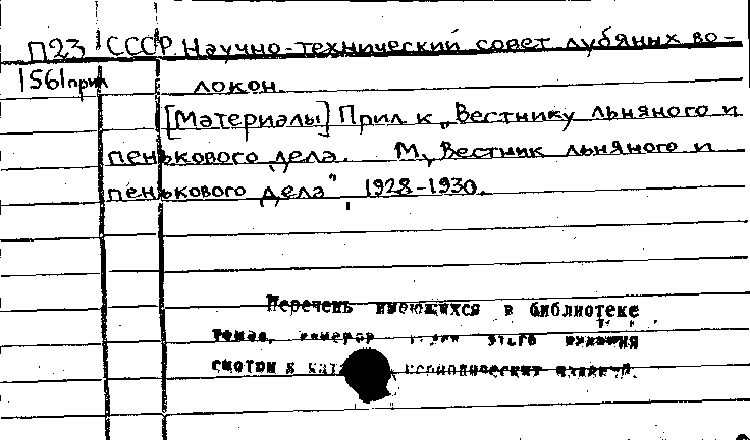 П23 СССР. Научно-технический совет лубяных во-
1561прил локон.
[Материалы] Прил. к „Вестнику льняного и
пенькового дела. М, „Вестник льняного и
пенькового дела", 1928-1930.
Перечень имеющихся в библиотеке
томов, номеров этого издания
смотри в периодических изданий.